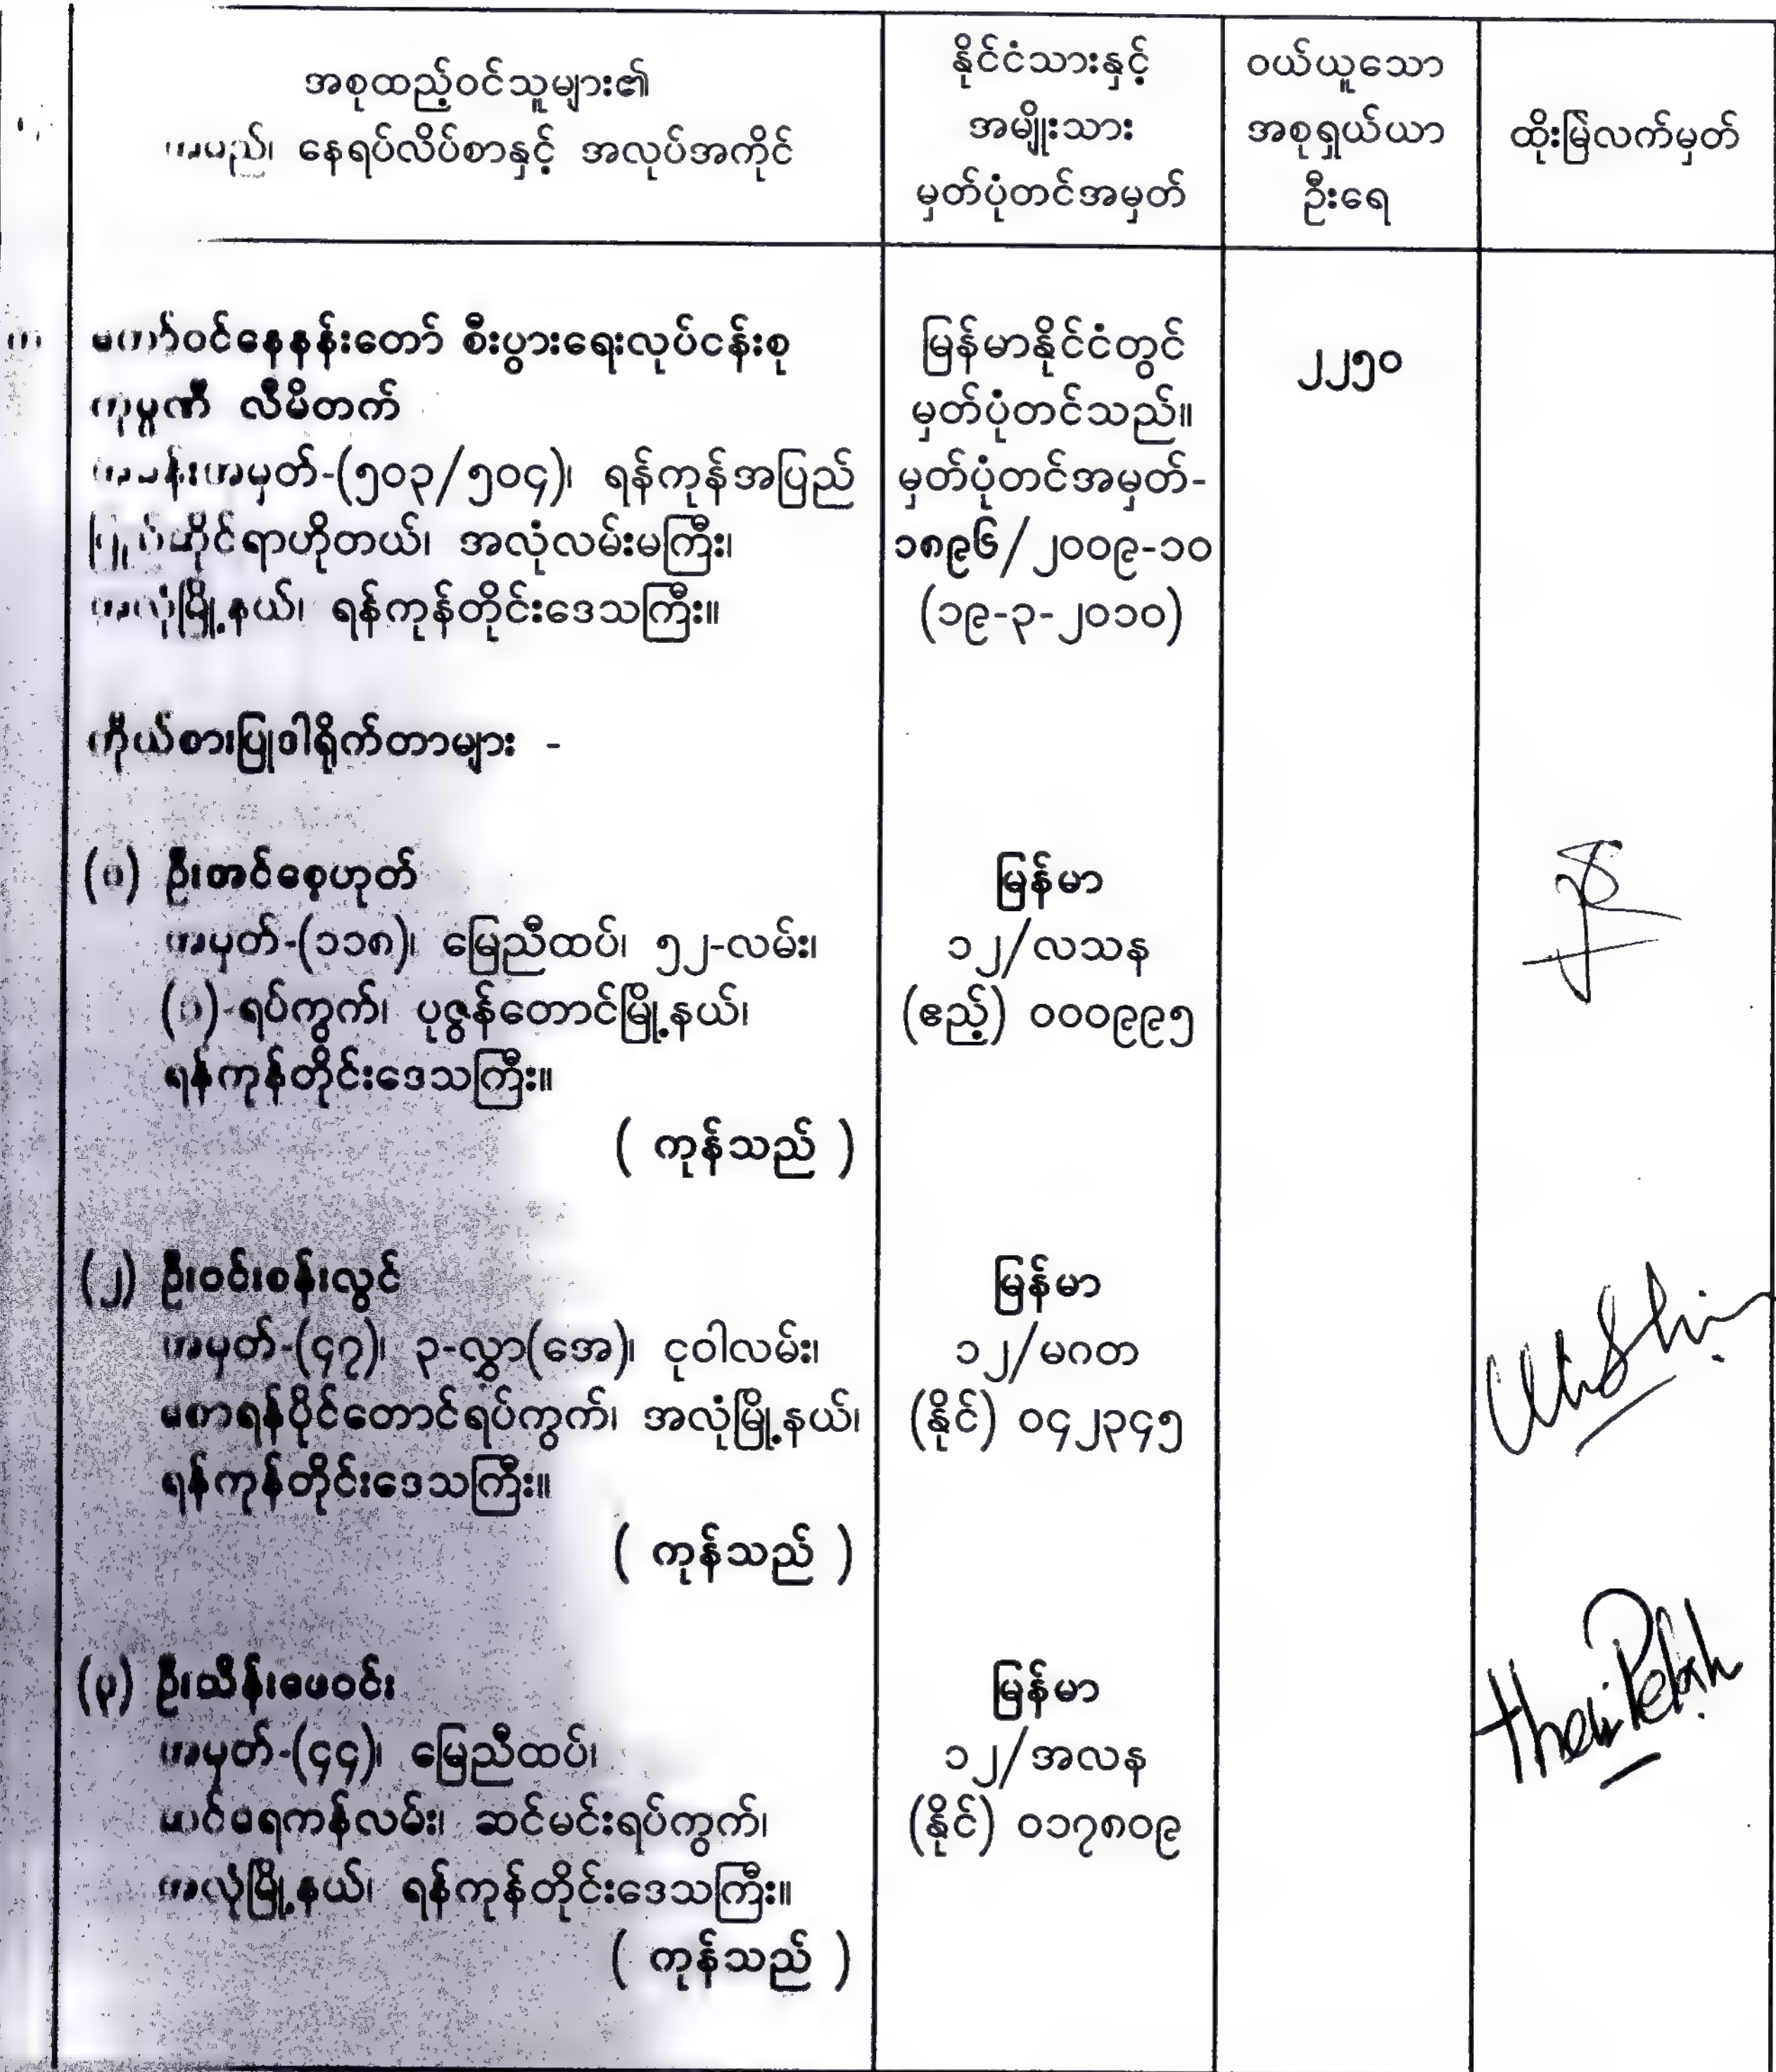 အစုထည့်ဝင်သူများ၏
အမည်၊ နေရပ်လိပ်စာနှင့် အလုပ်အကိုင်
နိုင်ငံသားနှင့်
အမျိုးသား
မှတ်ပုံတင်အမှတ်
ဝယ်ယူသော
အစုရှယ်ယာ
ဦးရေ
ထိုးမြဲလက်မှတ်
မဟာဝင်နေနန်းတော် စီးပွားရေးလုပ်ငန်းစု
ကုမ္ပဏီ လီမိတက်
အခန်းအမှတ်-(၅၀၃/၅၀၄)၊ ရန်ကုန်အပြည်
ပြည်ဆိုင်ရာဟိုတယ်၊ အလုံလမ်းမကြီး၊
အလုံမြို့နယ်၊ ရန်ကုန်တိုင်းဒေသကြီး။
မြန်မာနိုင်ငံတွင်
မှတ်ပုံတင်သည်။
မှတ်ပုံတင်အမှတ်-
၁၈၉၆/၂၀၀၉-၁၀
(၁၉-၃-၂၀၁၀)
၂၂၅၀
ကိုယ်စားပြုဒါရိုက်တာများ -
(၁) ဦးအင်စေ့ဟုတ်
အမှတ်-(၁၁၈)၊ မြေညီထပ်၊ ၅၂-လမ်း၊
ရပ်ကွက်၊ ပုဇွန်တောင်မြို့နယ်၊
ရန်ကုန်တိုင်းဒေသကြီး။
( ကုန်သည် )
မြန်မာ
၁၂/လသန
(ဧည့်) ၀၀၀၉၉၅
(၂) ဦးဝင်းစန်းလွင်
အမှတ်-(၄၇)၊ ၃-လွှာ(အေ)၊ ငုဝါလမ်း၊
စမ်းရန်ပိုင်တောင်ရပ်ကွက်၊ အလုံမြို့နယ်၊
ရန်ကုန်တိုင်းဒေသကြီး။
( ကုန်သည် )
မြန်မာ
၁၂/မဂတ
(နိုင်) ၀၄၂၃၄၅
(၃) ဦးသိန်းဖေဝင်း
အမှတ်-(၄၄)၊ မြေညီထပ်၊
ဆင်ရေကန်လမ်း၊ ဆင်မင်းရပ်ကွက်၊
အလုံမြို့နယ်၊ ရန်ကုန်တိုင်းဒေသကြီး။
( ကုန်သည် )
မြန်မာ
၁၂/အလန
(နိုင်) ၀၁၇၈၀၉